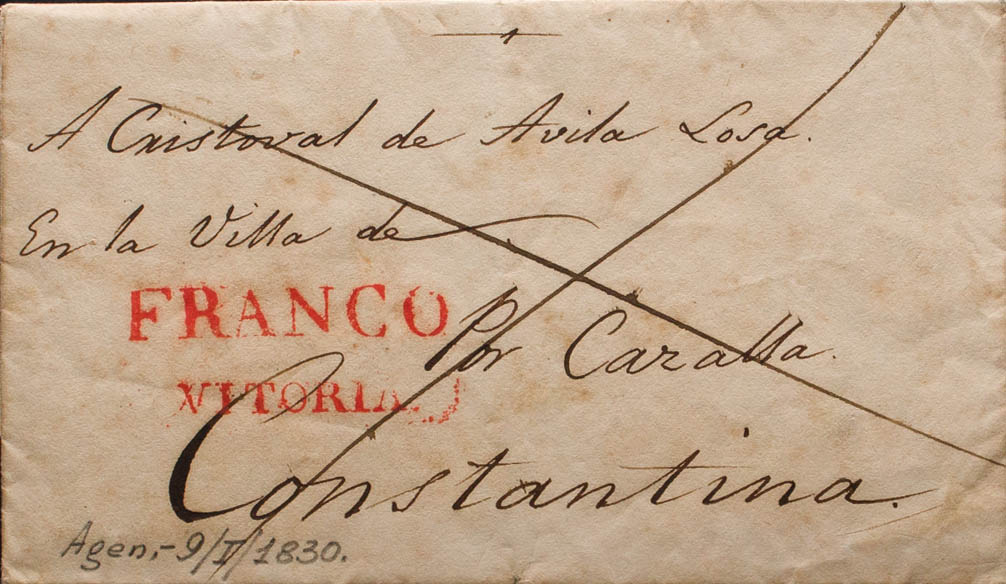 A Cristoval de Avila Losa.
En la Villa de
FRANCO
Por Cazalla.
VITORIA.
Constantina.
Agen,-9/I/1830.